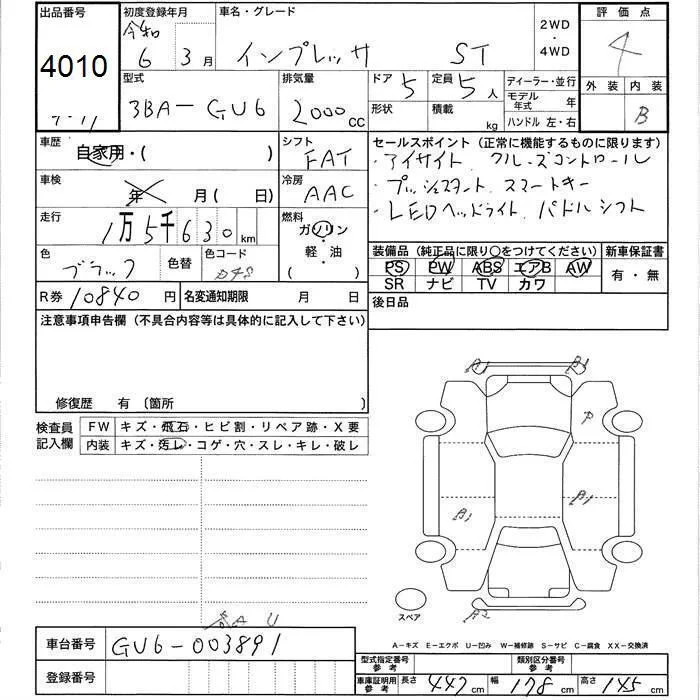 出品番号 初度登録年月 車名・グレード 2WD・4WD 評価点
4010 令和 6 3月 インプレッサ ST 4
型式 排気量 ドア 5 定員 5人 ディーラー・並行 外装 内装
3BA-GU6 2000cc 形状 積載 kg モデル年式 年 B
ハンドル 左・右
車歴 自家用・( ) シフト FAT セールスポイント(正常に機能するものに限ります)
車検 年 月( 日) 冷房 AAC ・アイサイト クルーズコントロール
・プッシュスタート スマートキー
走行 1万5千630km 燃料 ガソリン・軽油 ( ) ・LEDヘッドライト パドルシフト
色 ブラック 色替 色コード D4S 装備品(純正品に限り○をつけてください) 新車保証書
PS PW ABS エアB AW 有・無
SR ナビ TV カワ
R券 10840円 名変通知期限 月 日 後日品
注意事項申告欄(不具合内容等は具体的に記入して下さい)
修復歴 有 〔箇所 〕
検査員記入欄 FW キズ・飛石・ヒビ割・リペア跡・X要
内装 キズ・汚レ・コゲ・穴・スレ・キレ・破レ
P
スペア
A U
A-キズ E-エクボ U-凹み W-補修跡 S-サビ C-腐食 XX-交換済
車台番号 GU6-003891
型式指定番号 参考 類別区分番号 参考
登録番号 車庫証明用 参考 長さ 447cm 幅 178cm 高さ 145cm